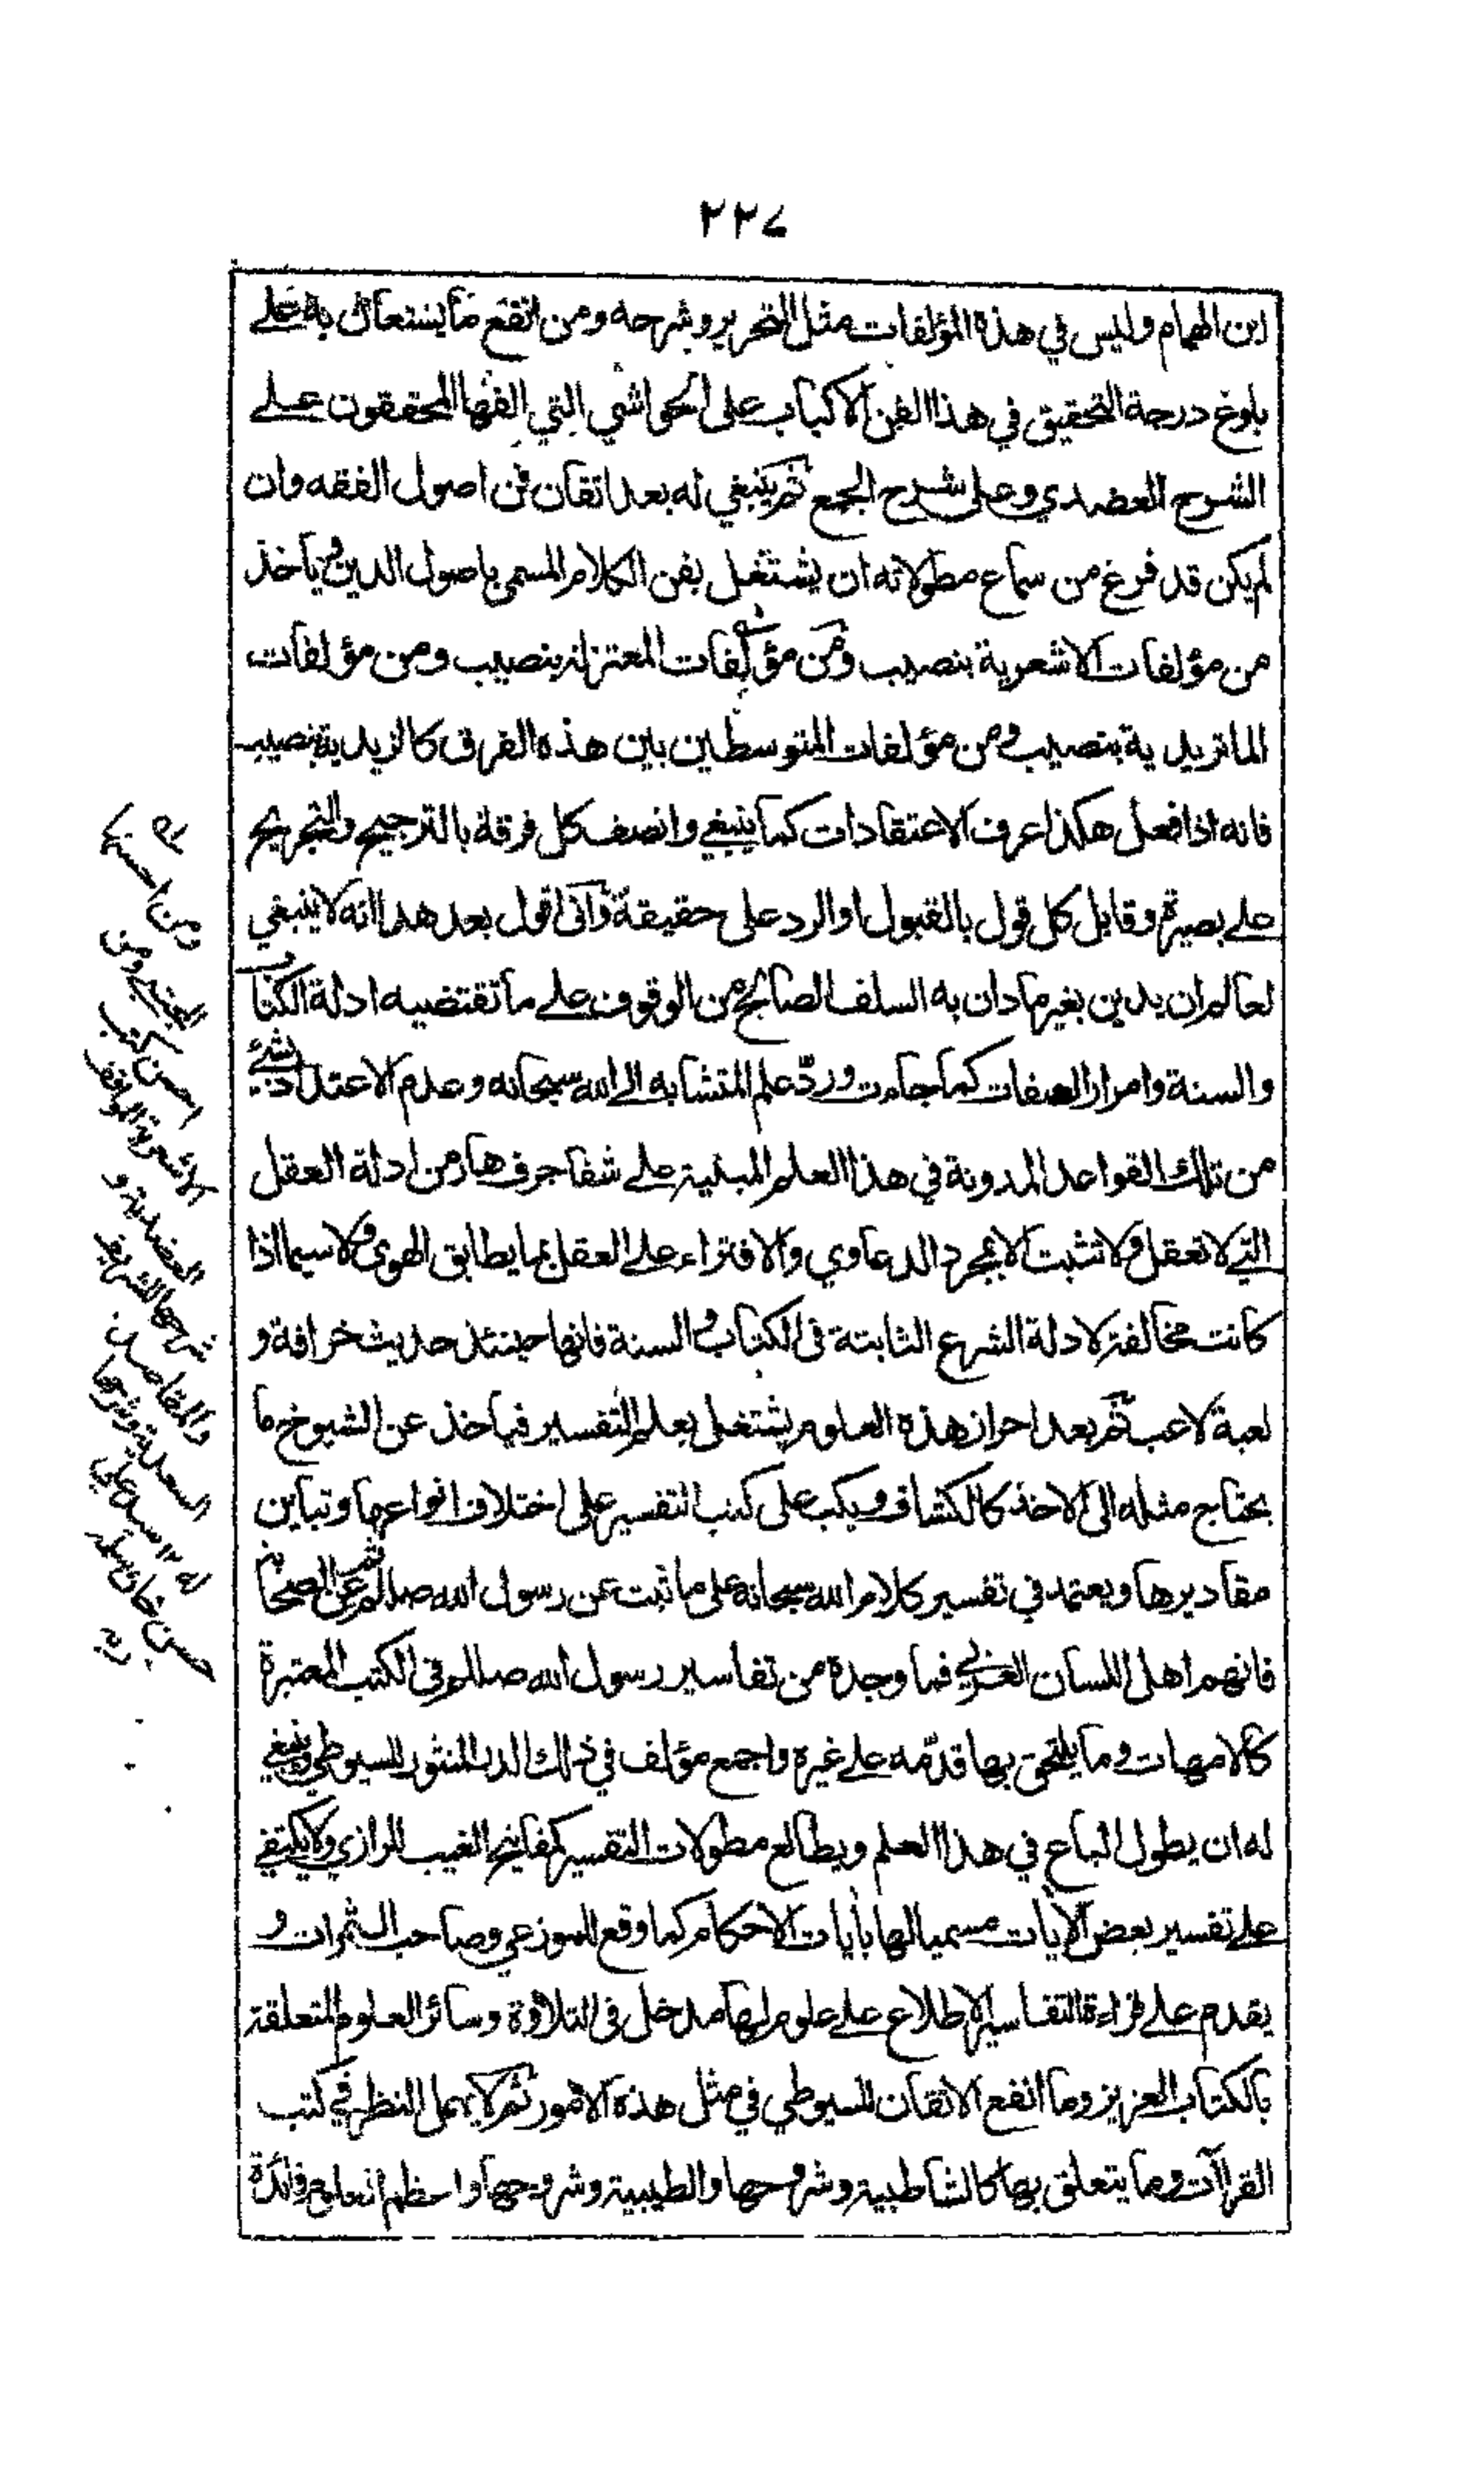 ٢٢٧
ابن الهمام وليس في هذه المؤلفات مثل التحرير وشرحه ومن انفع ما يستعان به على
بلوغ درجة التحقيق في هذا الفن الاكباب على الحواشي التي الفها المحققون على
الشرح العضدي وعلى شرح الجمع ثم ينبغي له بعد اتقان فن اصول الفقه وان
لم يكن قد فرغ من سماع مطولاته ان يشتغل بفن الكلام المسمى باصول الدين و يأخذ
من مؤلفات الاشعرية بنصيب ومن مؤلفات المعتزلة بنصيب ومن مؤلفات
الماتريدية بنصيب ومن مؤلفات المتوسطين بين هذه الفرق كالزيدية بنصيب
فانه اذا فعل هكذا عرف الاعتقادات كما ينبغي وانصف كل فرقة بالترجيح والتجريح
على بصيرة وقابل كل قول بالقبول او الرد على حقيقة واني اقول بعد هذا انه لا ينبغي
لعالم ان يدين بغير ما دان به السلف الصالح من الوقوف على ما تقتضيه ادلة الكتاب
والسنة وامرار الصفات كما جاءت وردّ علم المتشابه الى الله سبحانه وعدم الاعتداد بشيء
من تلك القواعد المدونة في هذا العلم المبنية على شفا جرف هار من ادلة العقل
التي لا تعقل ولا تثبت الا بمجرد الدعاوي والافتراء على العقل بما يطابق الهوى ولا سيما اذا
كانت مخالفة لادلة الشرع الثابتة في الكتاب والسنة فانها حينئذ حديث خرافة و
لعبة لاعب ثم بعد احراز هذه العلوم يشتغل بعلم التفسير فيأخذ عن الشيوخ ما
يحتاج مثله الى الاخذ كالكشاف ويكب على كتب التفسير على اختلاف انواعها وتباين
مقاديرها ويعتمد في تفسير كلام الله سبحانه على ما ثبت عن رسول الله صللم ثم عن الصحابة
فانهم اهل اللسان العربي فما وجده من تفاسير رسول الله صللم في الكتب المعتبرة
كالامهات وما يلتحق بها قدّمه على غيره واجمع مؤلف في ذلك الدر المنثور للسيوطي وينبغي
له ان يطول الباع في هذا العلم ويطالع مطولات التفسير كمفاتيح الغيب للرازي ولا يكتفي
على تفسير بعض الآيات مسميا لها بآيات الاحكام كما وقع للموزعي وصاحب الثمرات و
يقدم على قراءة التفاسير الاطلاع على علوم لها مدخل في التلاوة وسائر العلوم المتعلقة
بالكتاب العزيز وما انفع الاتقان للسيوطي في مثل هذه الامور ثم لا يهمل النظر في كتب
القرآات وما يتعلق بها كالشاطبية وشروحها والطيبية وشروحها واعظم العلوم فائدة
ومن احسنها
المجتبى ومن
احسن كتب
الاشعرية المواقف
العضدية و
شرحها الشريفي
والمقاصد
السعدية وشرحها
له ١٢ سيد علي
حسن خان سلمه
ربه